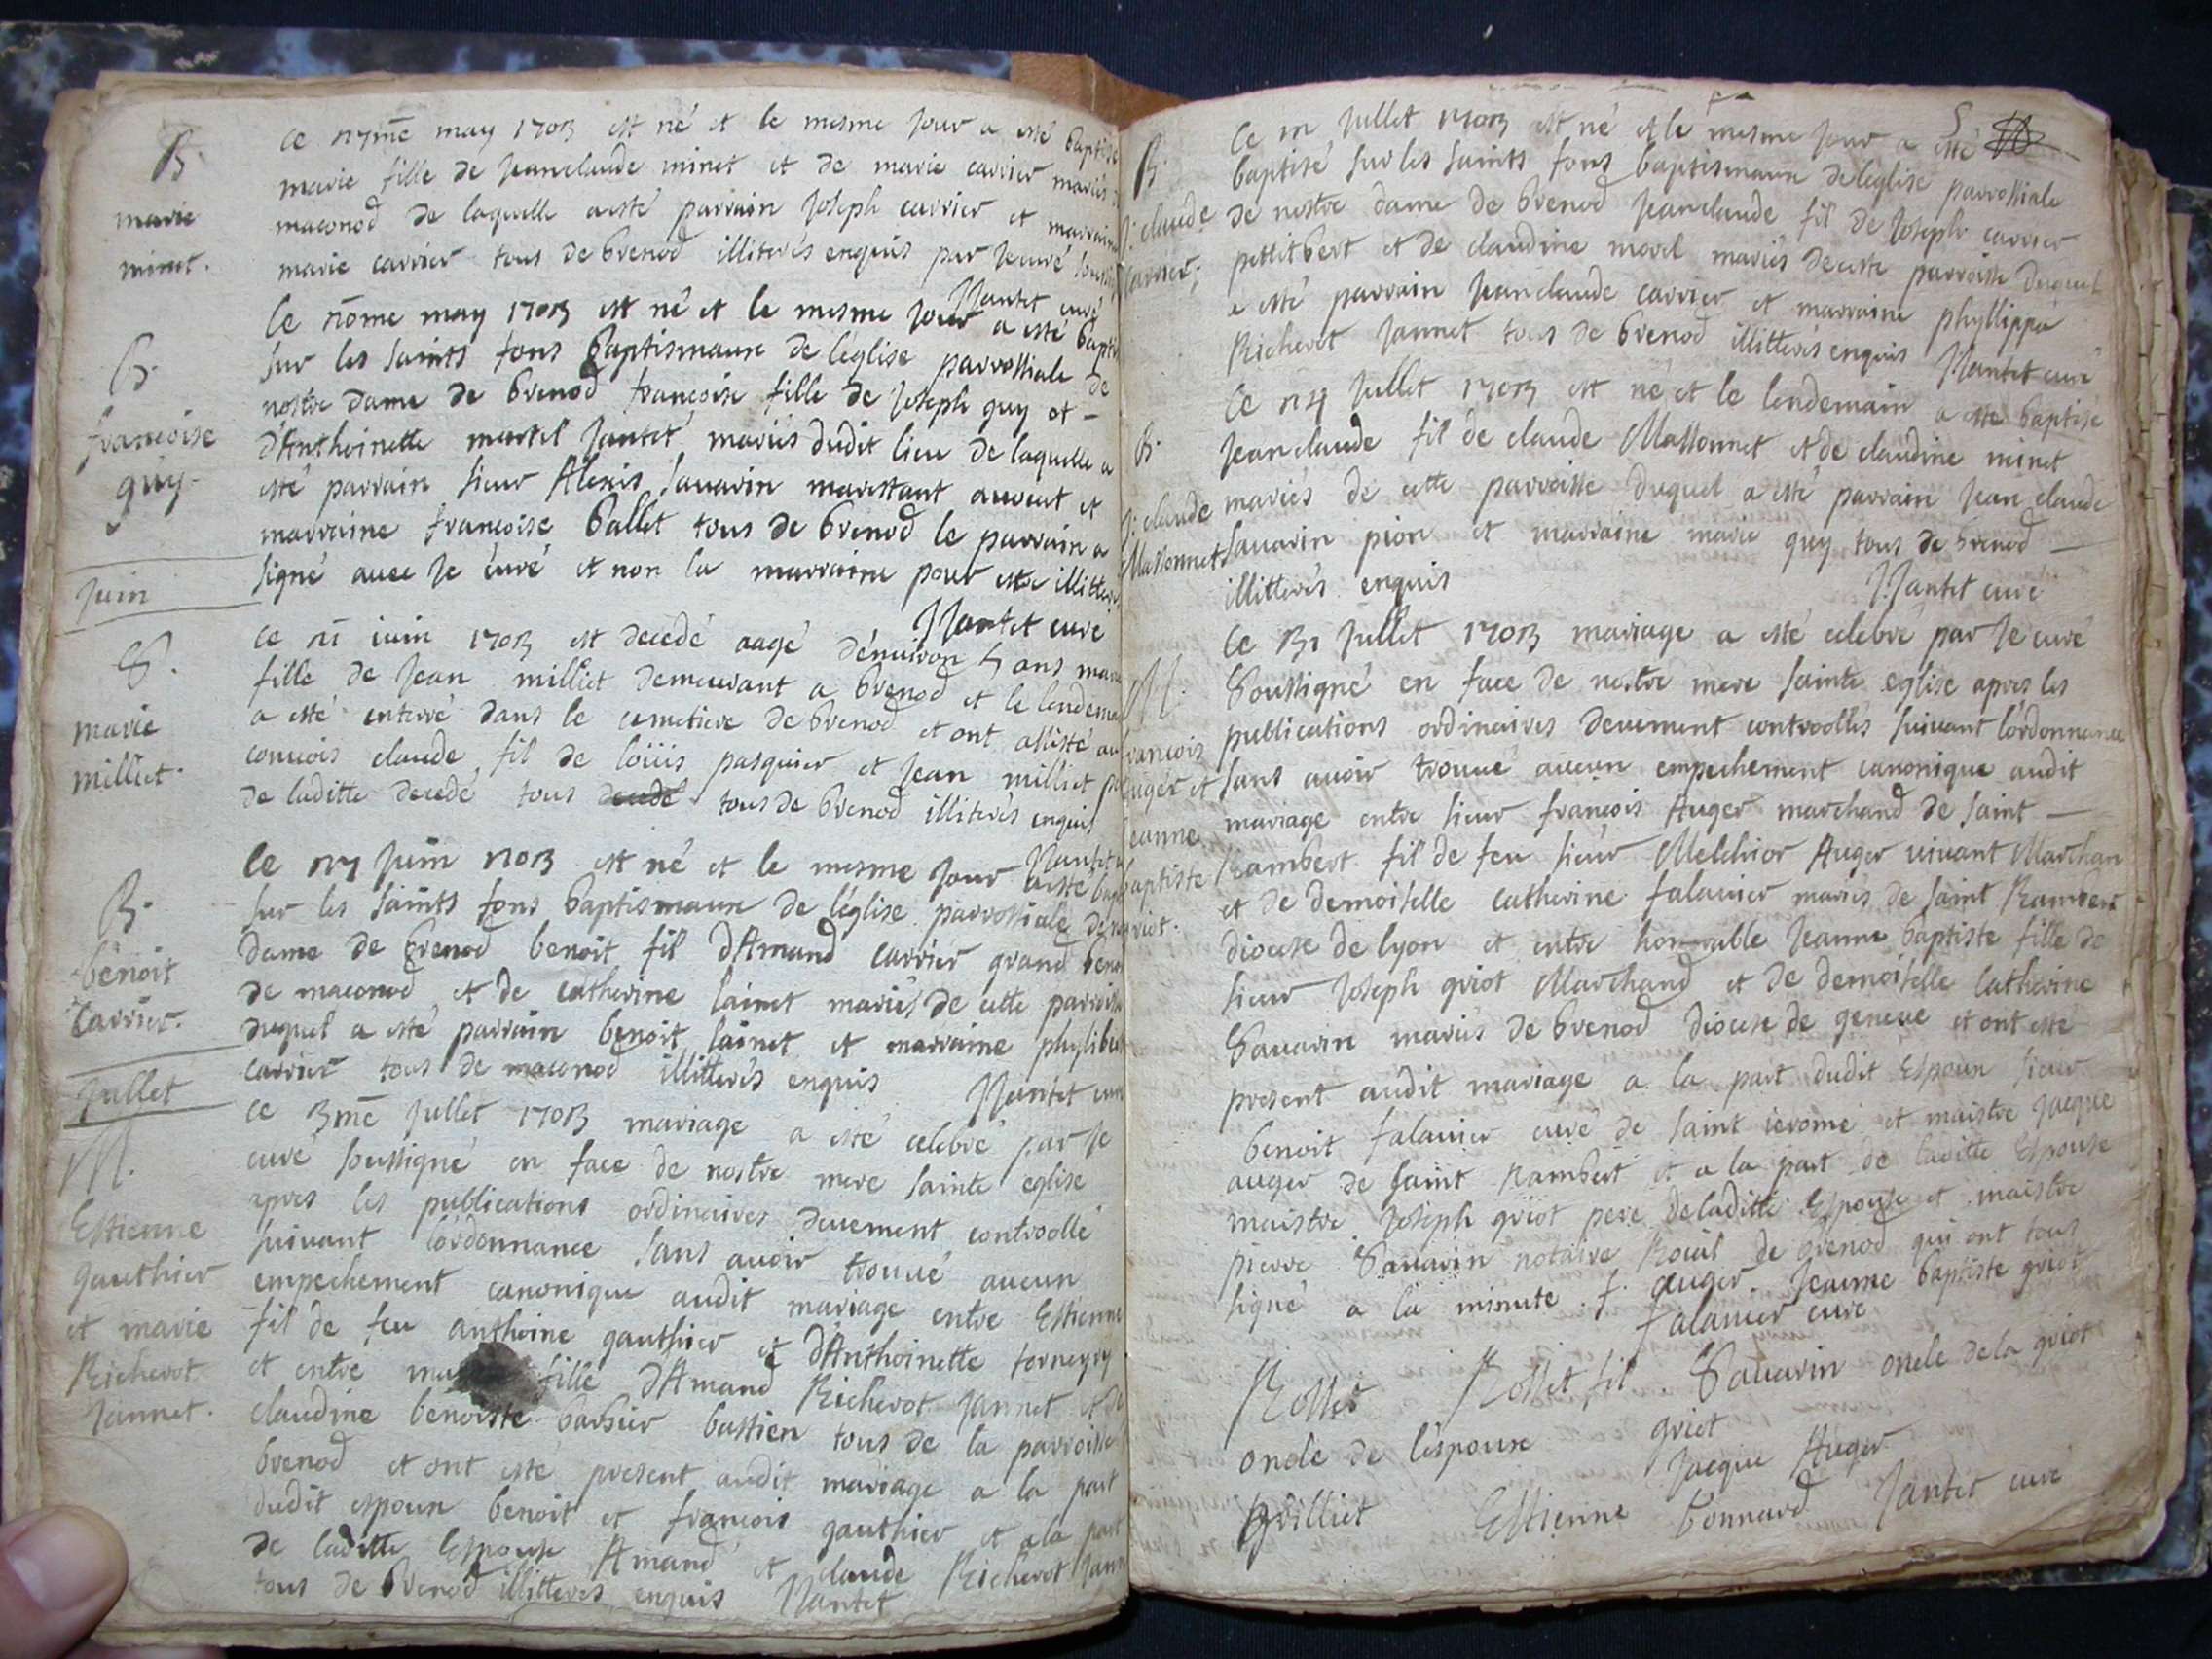 B.
marie
minet.
may 1703 est né et le mesme jour a esté baptisé
marie fille de Jeanclaude minet et de marie carrier mariés
maconod de laquelle a esté parrain Joseph carrier et marraine
marie carrier tous de brenod illiterés enquis par je curé
Jantet curé
B.
francoise
guy.
Ce may 1703 est né et le mesme jour a esté
sur les saints fons Baptismaux de léglise parrossiale de
nostre dame de brenod francoise fille de Joseph guy et -
dAnthoinette martel Jantet mariés dudit lieu de laquelle a
esté parrain sieur Alexis sauarin et
marraine francoise Ballet tous de brenod le parrain a
signé auec je curé et non la marraine pour estre
Jantet curé
Juin
S.
marie
milliet.
ce iuin 1703 est decedé aagé dénuiron 5 ans
fille de Jean milliet demeurant a brenod et le
a esté enterré dans le cemetiere de brenod et ont assisté au
conuois claude fil de loüis pasquier et Jean milliet
de laditte decedé tous decedé tous de brenod illiterés enquis
B.
benoit
Carrier.
Le Juin 1703 est né et le mesme jour a esté
sur les saints fons baptismaux de léglise parrossiale
dame de brenod benoit fil dAmand carrier grand
de maconod et de catherine lainet mariés de cette
duquel a esté parrain benoit lainet et marraine
carrier tous de maconod illitterés enquis Jantet
Jullet
M.
Estienne
gauthier
et marie
Richerot
Jannet.
ce 3me Jullet 1703 mariage a esté celebré par je
curé soussigné en face de nostre mere sainte eglise
apres les publications ordinaires deuement controollé
suivant lórdonnance sans auoir trouué aucun
empechement canonique audit mariage entre Estienne
fil de feu anthoine gauthier et dAnthoinette
et entre fille dAmand Richerot Jannet et de
claudine benoiste barbier bastien tous de la parroisse
brenod et ont esté present audit mariage a la part
dudit espoux benoit et francois gauthier et a la part
de laditte Espouse Amand et claude Richerot
tous de brenod illitteres enquis Jantet
5
B.
J: claude
carrier.
Ce Jullet 1703 est né et le mesme jour a esté
baptisé sur les saints fons baptismaux de léglise parrossiale
de nostre dame de brenod Jeanclaude fil de Joseph carrier
petitbert et de claudine morel mariés decette parroisse duquel
a esté parrain Jeanclaude carrier et marraine phyllippa
Richerot Jannet tous de brenod illitterés enquis Jantet curé
B.
J: claude
Massonnet
Ce Jullet 1703 est né et le lendemain a esté baptisé
Jeanclaude fil de claude Massonnet et de claudine minet
mariés de cette parroisse duquel a esté parrain Jean claude
sauarin pion et marraine marie guy tous de brenod —
illitterés enquis Jantet curé
M.
francois
auger et
Jeanne
baptiste
griot.
Ce 31 Jullet 1703 mariage a esté celebré par je curé
Soussigné en face de nostre mere sainte eglise apres les
publications ordinaires deuement controollés suiuant lórdonnance
sans auoir trouué aucun empechement canonique audit
mariage entre sieur francois Auger marchand de saint —
Rambert fil de feu sieur Melchior Auger uiuant Marchan
et de demoiselle catherine falauier mariés de saint Rambert
diocese de lyon et entre honnorable Jeanne baptiste fille de
sieur Joseph griot Marchand et de demoiselle Catherine
Sauarin mariés de brenod diocese de geneue et ont esté
present audit mariage a la part dudit Espoux sieur
benoit falauier curé de saint ierome et maistre Jacque
auger de saint Rambert et a la part de laditte Espouse
maistre Joseph griot pere deladitte Espouse et maistre
pierre Sauarin notaire Roial de brenod qui ont tous
signé a la minute. f. auger. Jeanne baptiste griot
falauier curé
Rosset Rosset fil. Sauarin oncle dela griot
oncle de léspoux griot
Jacque Auger
grilliet Estienne bonnard Jantet curé